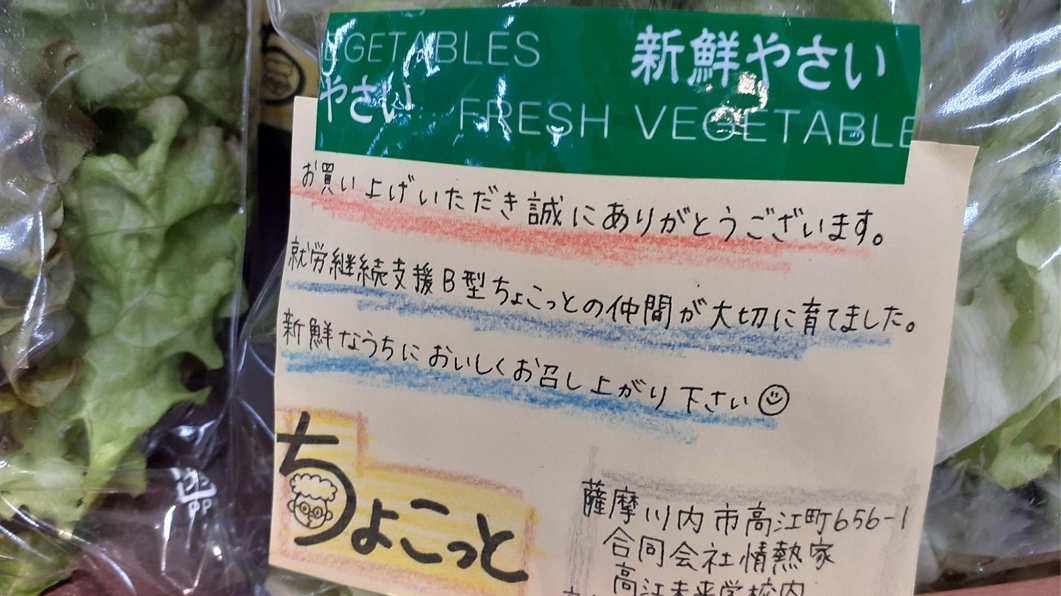 EGETABLES 新鮮やさい
やさい FRESH VEGETABLE
お買い上げいただき誠にありがとうございます。
就労継続支援B型ちょこっとの仲間が大切に育てました。
新鮮なうちにおいしくお召し上がり下さい
ちょこっと
薩摩川内市高江町656-1
合同会社情熱家
高江未来学校内